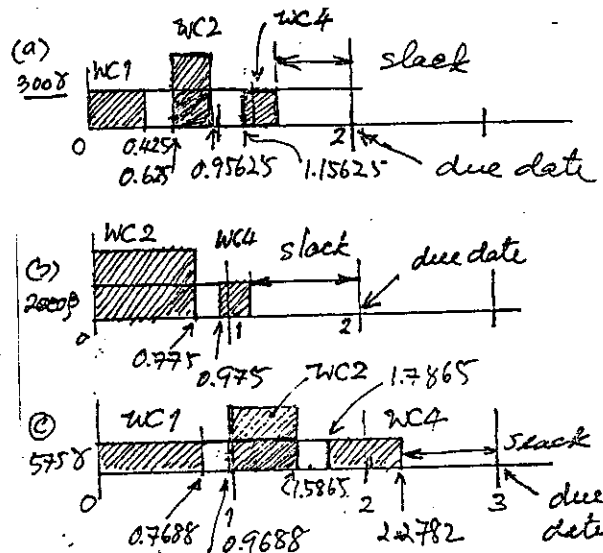 (a)
300γ
WC1
WC2
WC4
slack
0
0.425
0.625
0.95625
1.15625
2
due date
(b)
2000β
WC2
WC4
slack
due date
0
0.775
0.975
1
2
(c)
575γ
WC1
WC2
1.7865
WC4
slack
0
0.7688
0.9688
1
1.5865
2
2.2782
3
due date